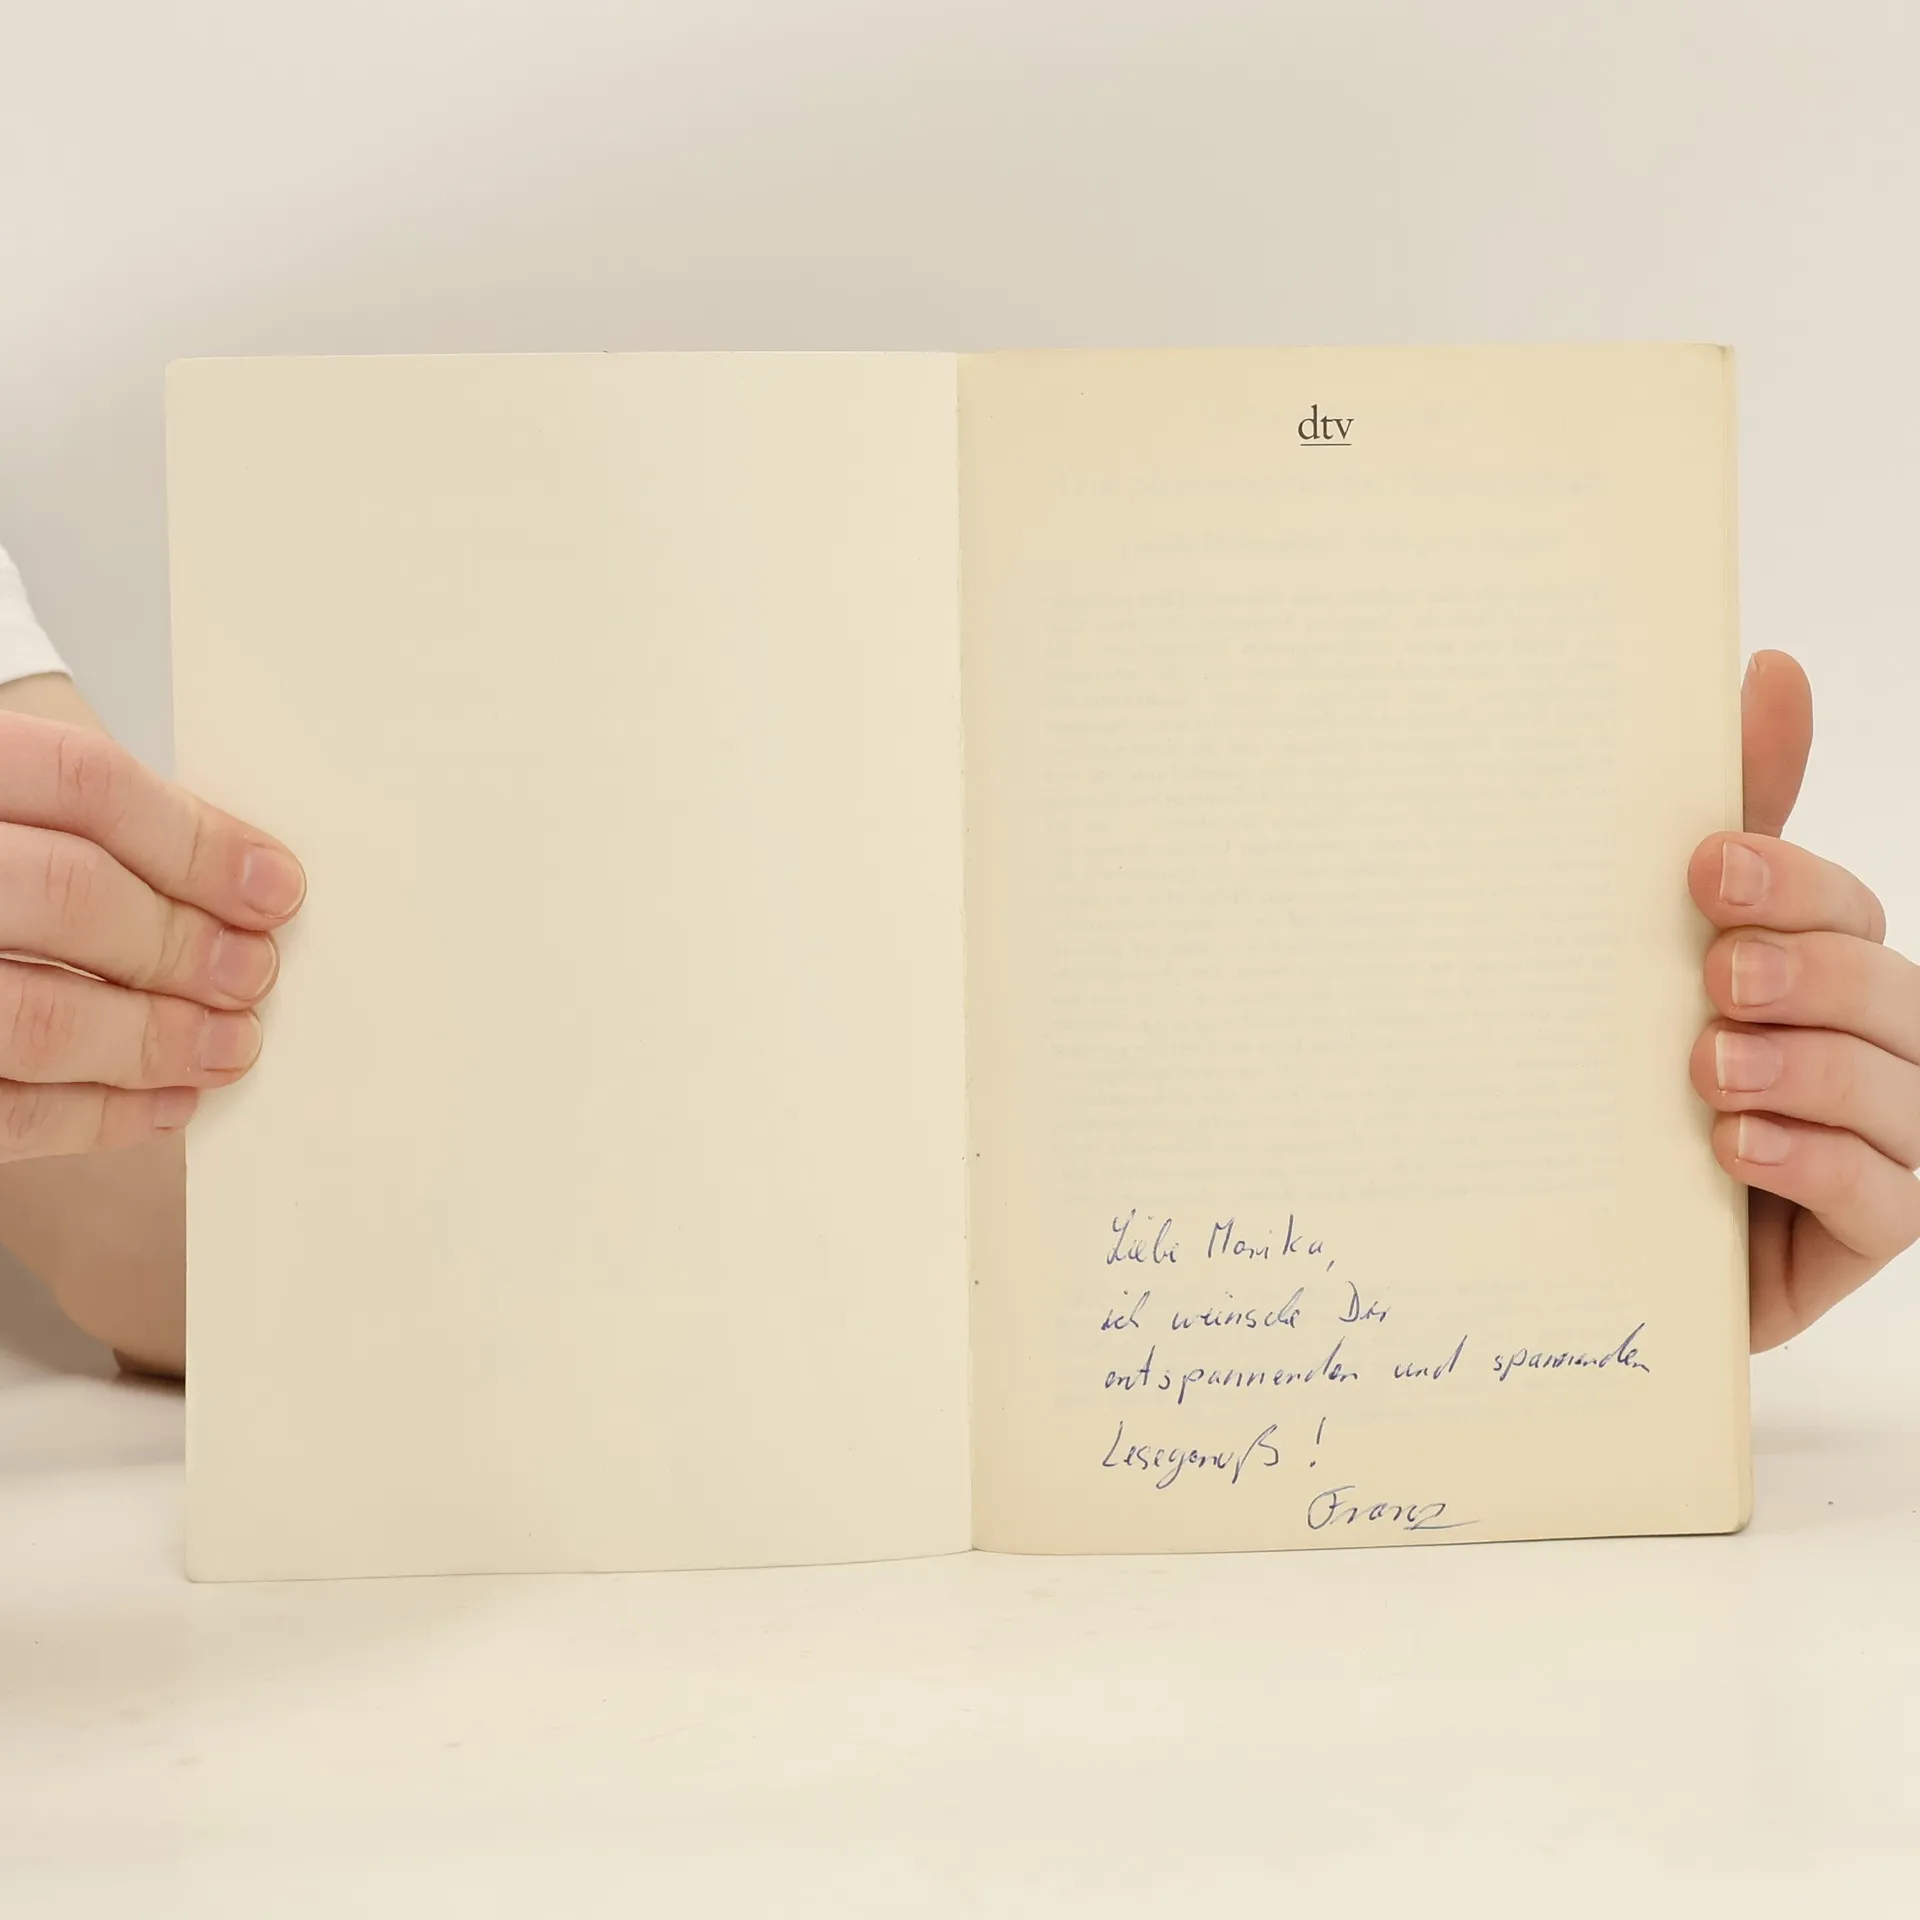 dtv
Liebe Monika,
ich wünsche Dir
entspannenden und spannenden
Lesegenuß !
Franz